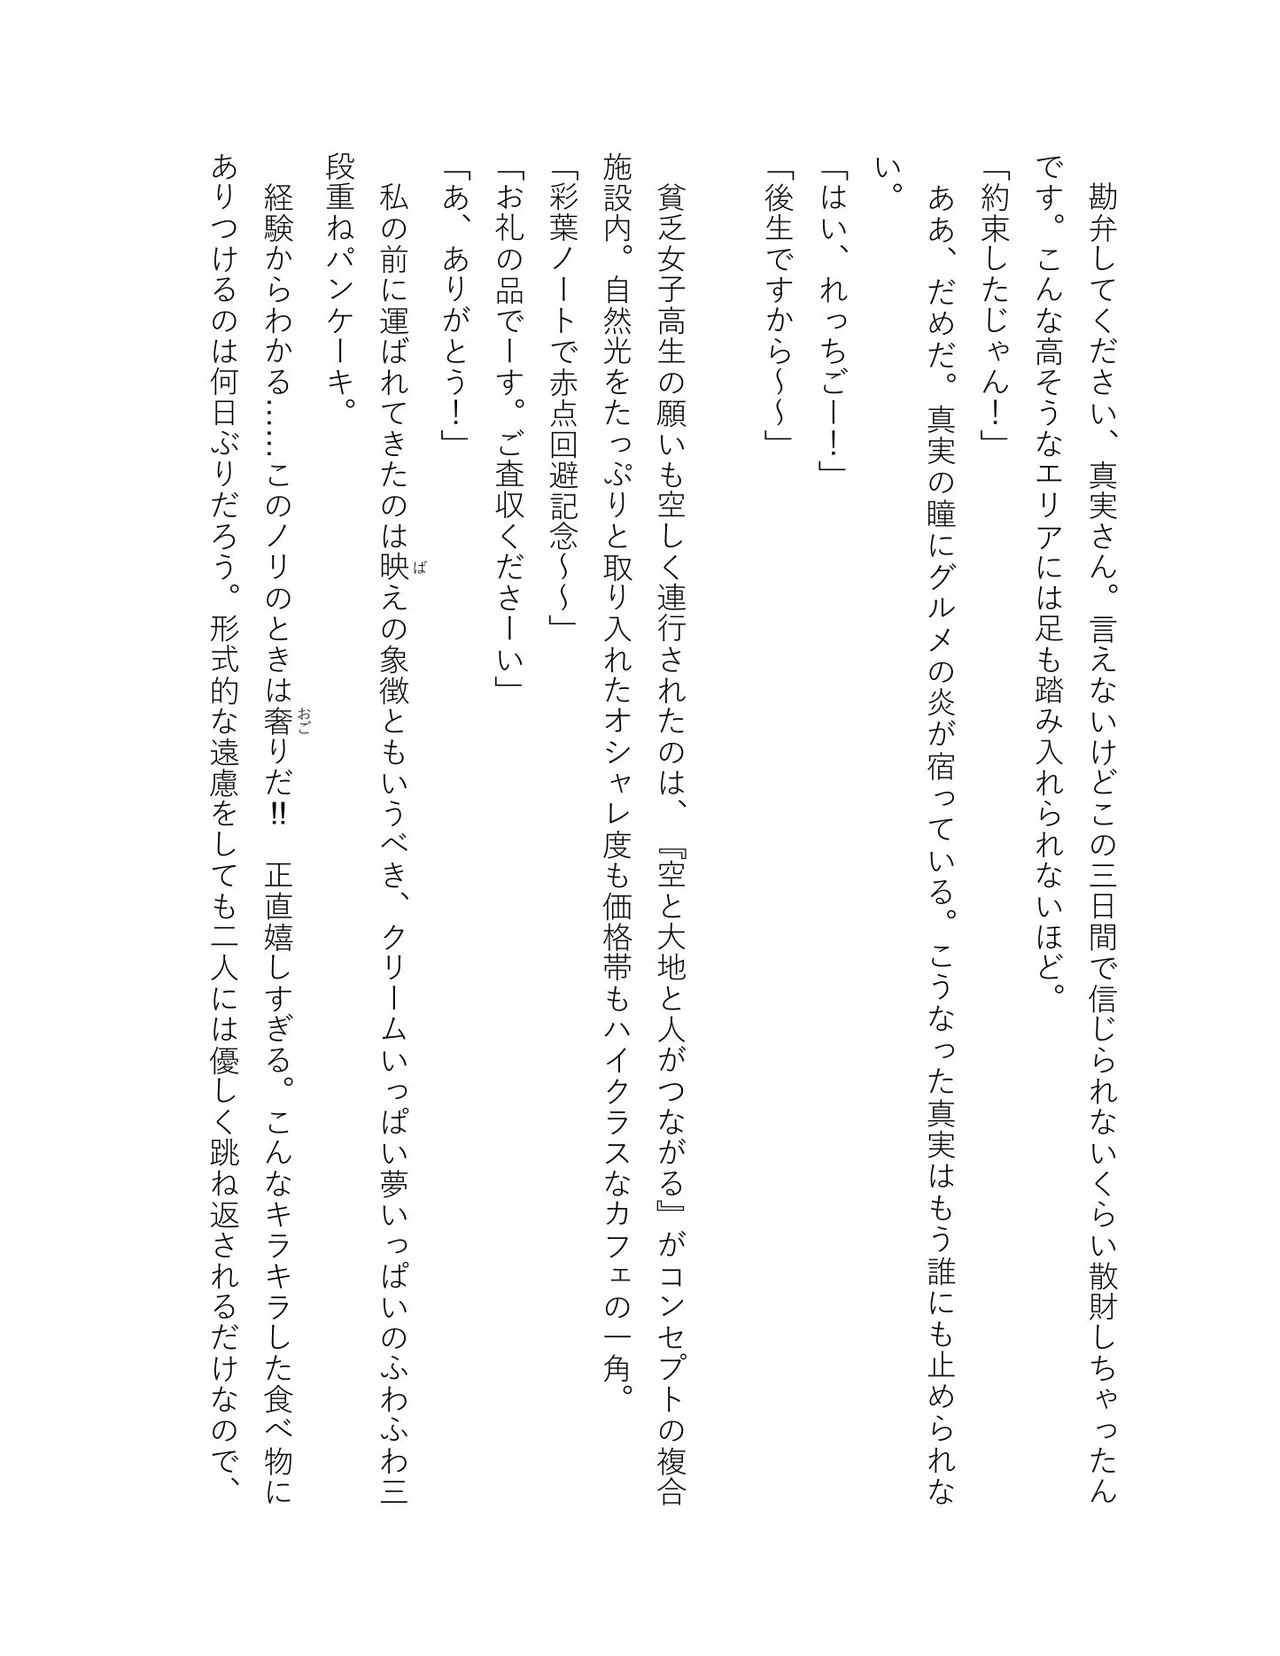 勘弁してください、真実さん。言えないけどこの三日間で信じられないくらい散財しちゃったん
です。こんな高そうなエリアには足も踏み入れられないほど。
「約束したじゃん！」
　ああ、だめだ。真実の瞳にグルメの炎が宿っている。こうなった真実はもう誰にも止められな
い。
「はい、れっちごー！」
「後生ですから〜〜」
　貧乏女子高生の願いも空しく連行されたのは、『空と大地と人がつながる』がコンセプトの複合
施設内。自然光をたっぷりと取り入れたオシャレ度も価格帯もハイクラスなカフェの一角。
「彩葉ノートで赤点回避記念〜〜」
「お礼の品でーす。ご査収くださーい」
「あ、ありがとう！」
　私の前に運ばれてきたのは映ばえの象徴ともいうべき、クリームいっぱい夢いっぱいのふわふわ三
段重ねパンケーキ。
　経験からわかる……このノリのときは奢おごりだ‼　正直嬉しすぎる。こんなキラキラした食べ物に
ありつけるのは何日ぶりだろう。形式的な遠慮をしても二人には優しく跳ね返されるだけなので、